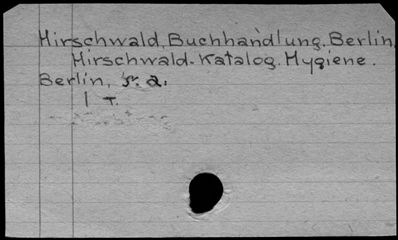 Hirschwald, Buchhandlung. Berlin.
Hirschwald-Katalog. Hygiene.
Berlin, s. a.
1 T.